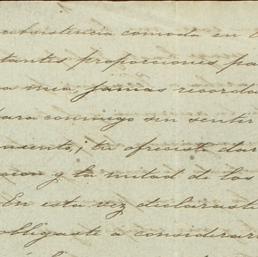 subsistencia comoda en
tantes proporciones pa
a mia jamas recorda
para conmigo sin sentir
te afecto dar
cion y la mitad de los
En esta vez declaraste
obligaste a considerar